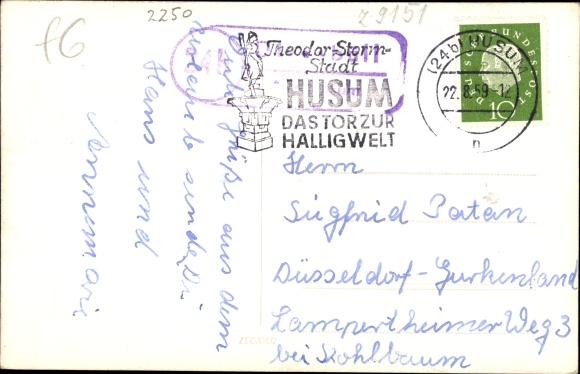 f6
2250
z 9151
Gute Grüße aus dem
Urlaub sendet Dir
Hans und
Annmarie
Theodor-Storm-
Stadt
HUSUM
DAS TOR ZUR
HALLIGWELT
(24b) HUSUM
22.8.59-12
n
DEUTSCHE BUNDESPOST
10
Herrn
Siegfried Patan
Düsseldorf-Gurkenland
Lampertheimer Weg 3
bei Kohlbaum